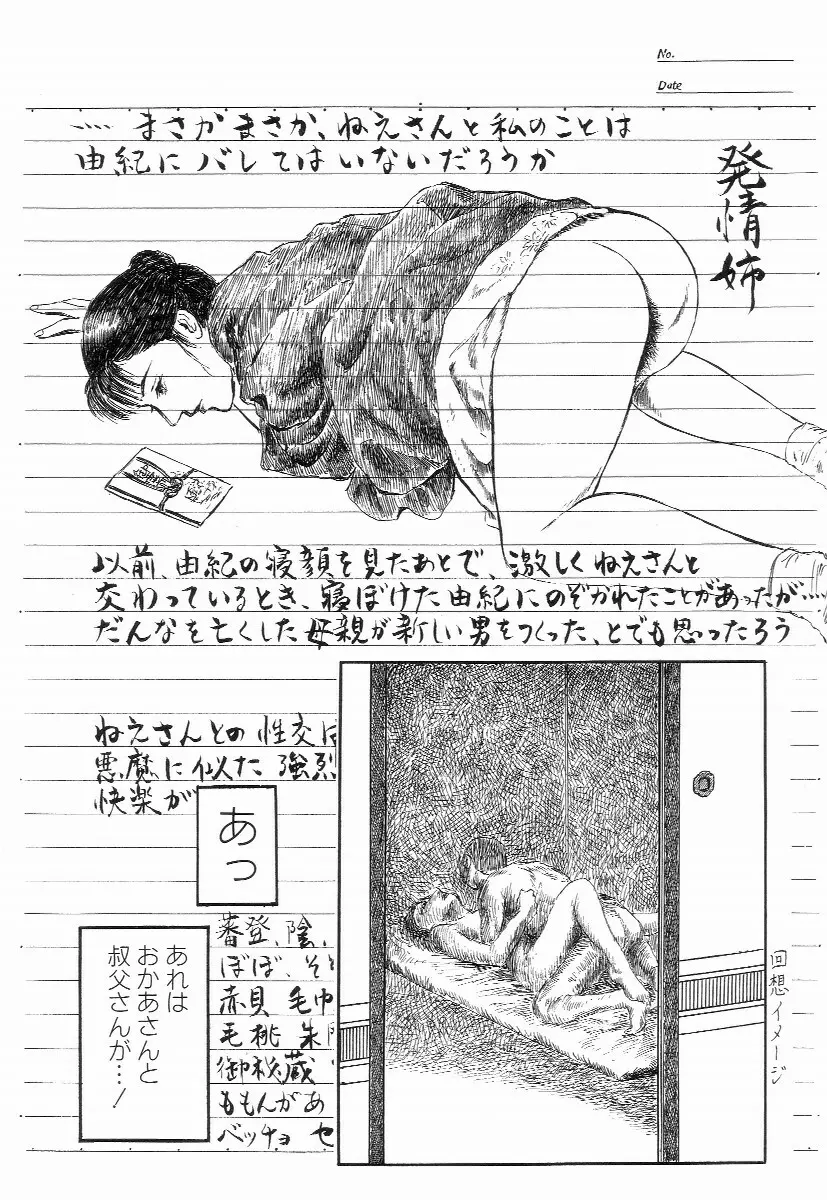 No.
Date
…… まさかまさか、ねえさんと私のことは
由紀にバレてはいないだろうか
発情姉
以前、由紀の寝顔を見たあとで、激しくねえさんと
交わっているとき、寝ぼけた由紀にのぞかれたことがあったが……
だんなを亡くした母親が新しい男をつくった、とでも思ったろう
ねえさんとの性交は
悪魔に似た強烈
快楽が
あっ
あれは
おかあさんと
叔父さんが…！
蕃登、陰、
ぼぼ、そ
赤貝 毛巾
毛桃 朱
御秘蔵
ももんがあ
ベッチョ セ
回想イメージ